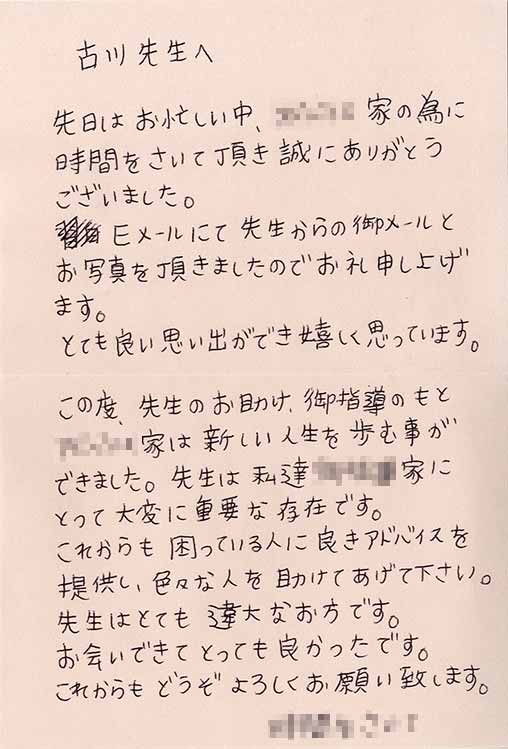 古川先生へ
先日はお忙しい中、家の為に
時間をさいて頂き誠にありがとう
ございました。
Eメールにて先生からの御メールと
お写真を頂きましたのでお礼申し上げ
ます。
とても良い思い出ができ嬉しく思っています。
この度、先生のお助け、御指導のもと
家は新しい人生を歩む事が
できました。先生は私達家に
とって大変に重要な存在です。
これからも困っている人に良きアドバイスを
提供し、色々な人を助けてあげて下さい。
先生はとても達大なお方です。
お会いできてとっても良かったです。
これからもどうぞよろしくお願い致します。